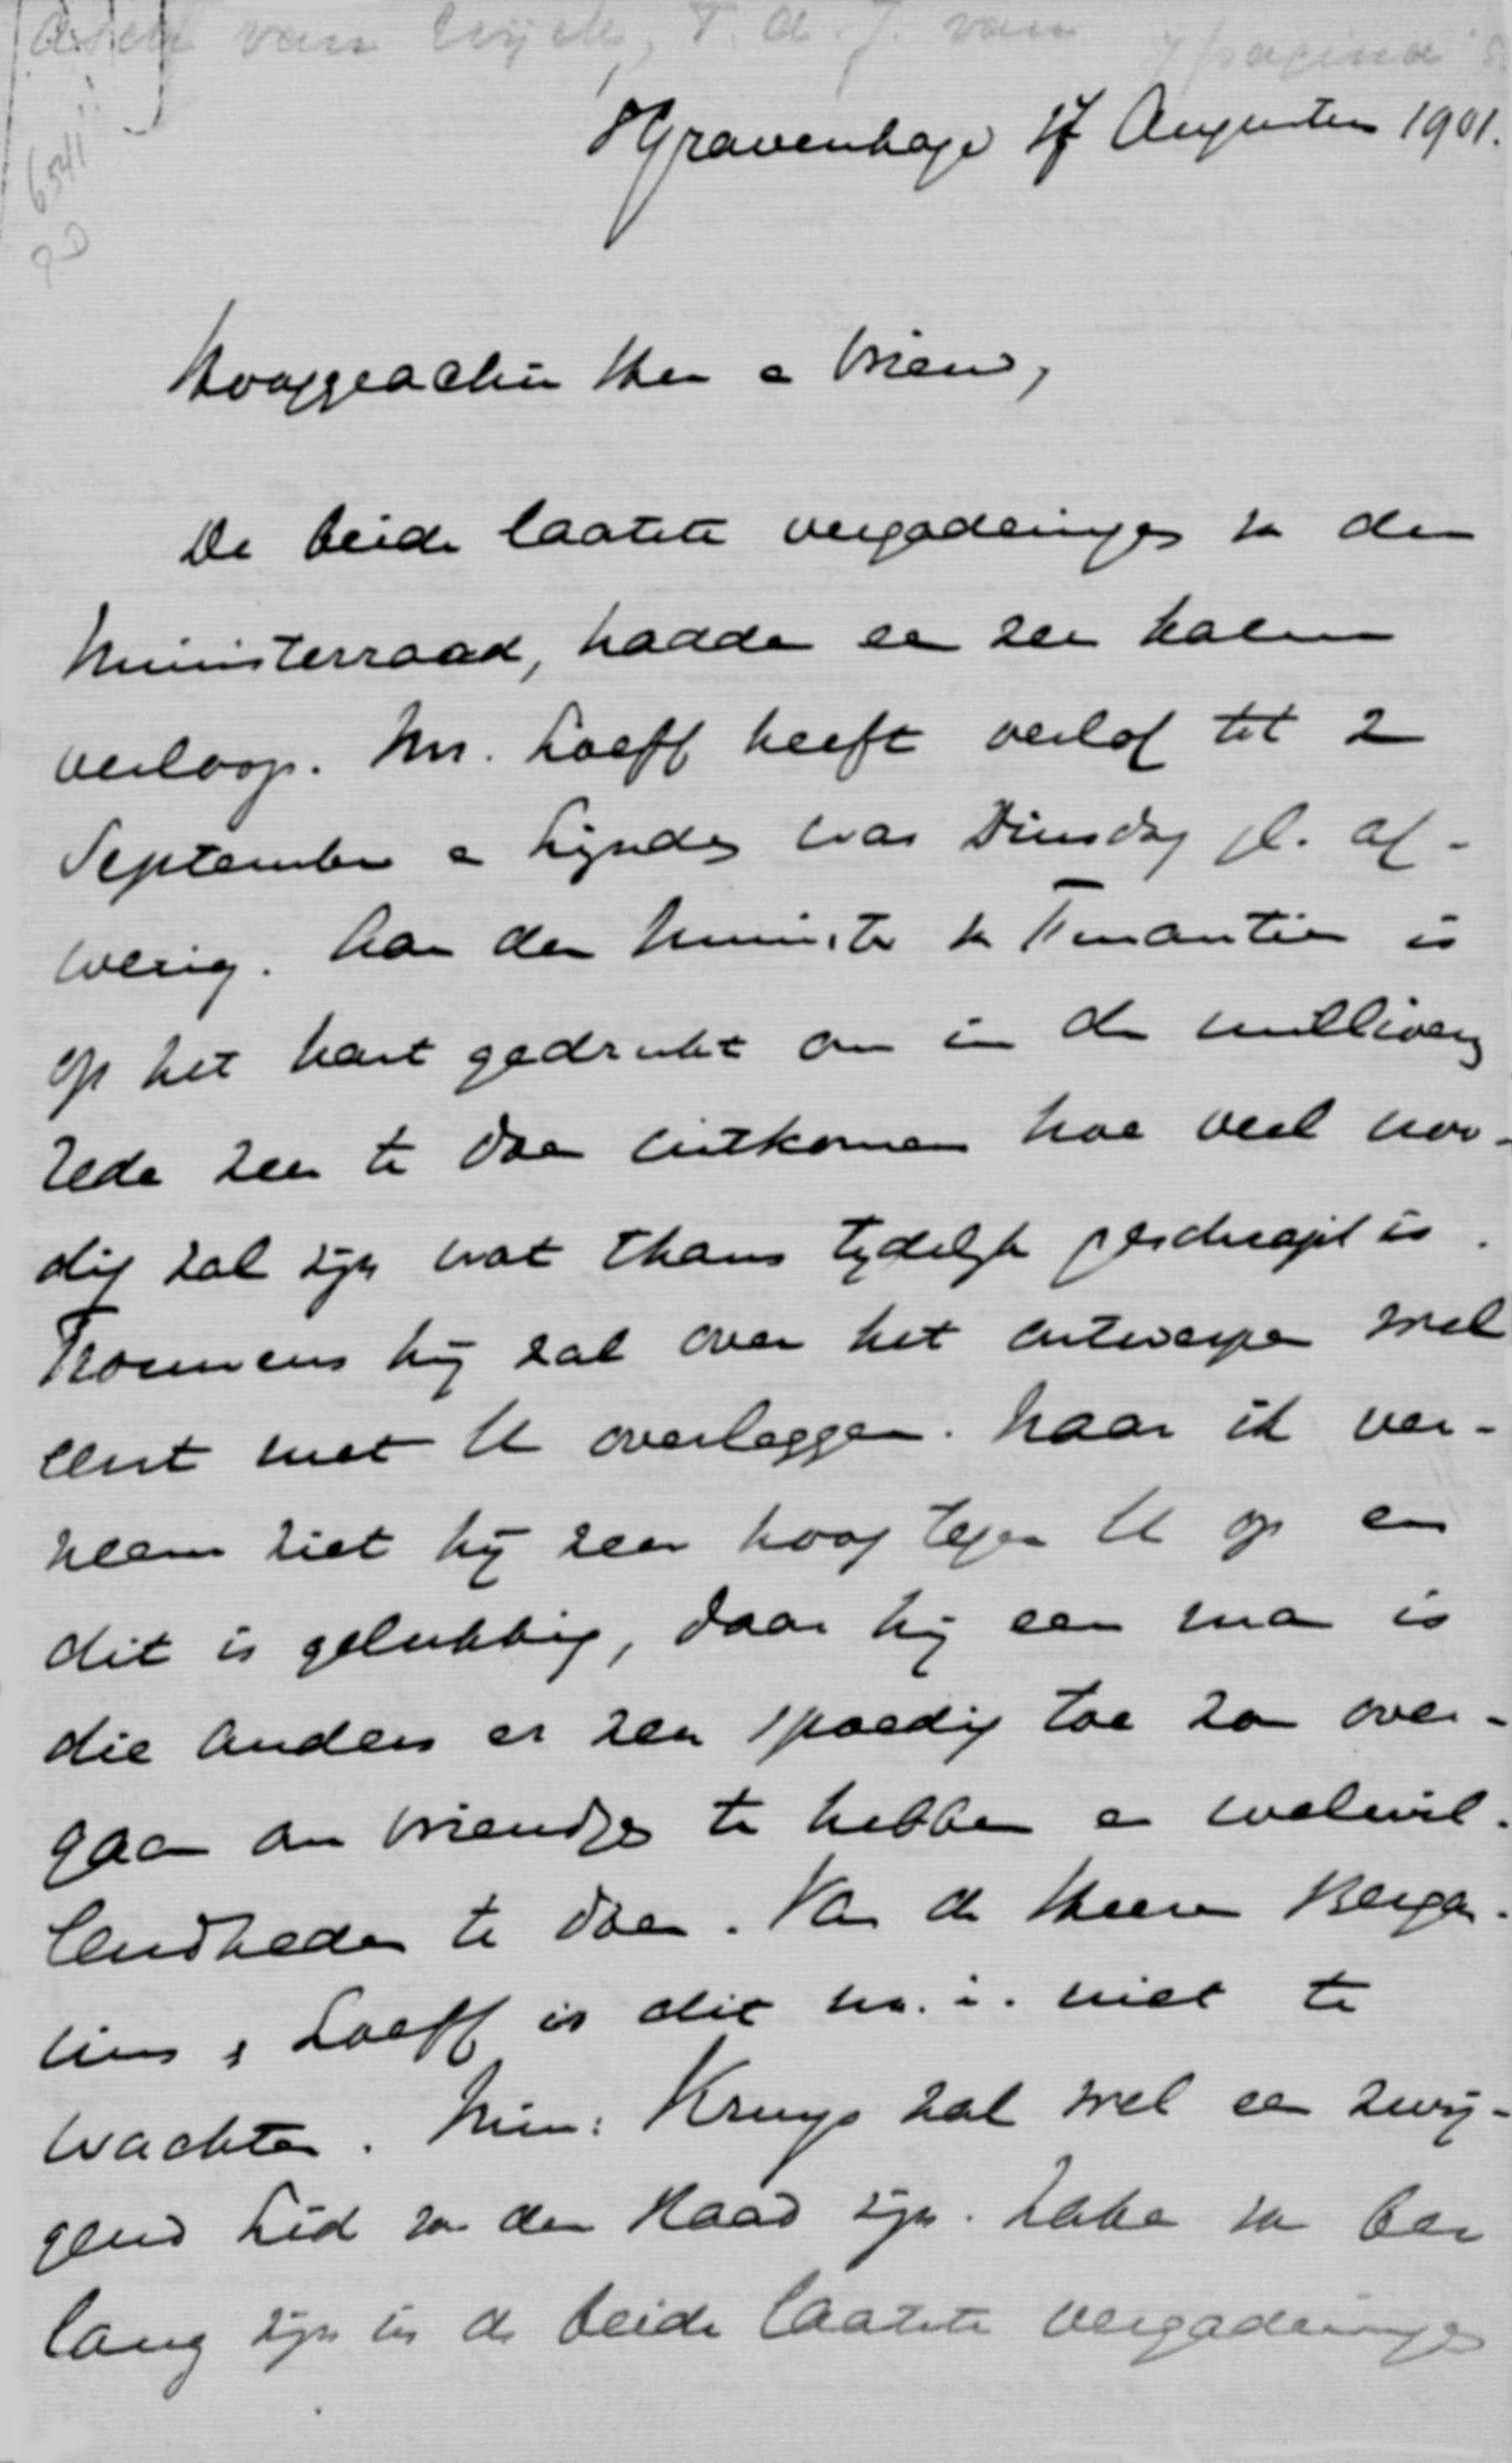 Asch van Wijck, T. A. J. van
4 pagina's.
6541
's Gravenhage 17 Augustus 1901.
Hooggeachte Heer en Vriend,
De beide laatste vergaderingen van den
Ministerraad, hadden een zeer kalm
verloop. Mr. Loeff heeft verlof tot 2
September en Lynden was Dinsdag jl. af-
wezig. Aan den Minister van Financiën is
op het hart gedrukt om in de millioenen
rede zeer te doen uitkomen hoe veel noo-
dig zal zijn wat thans tijdelijk is.
Trouwens hij zal over het ontwerp wel
eerst met U overleggen. Naar ik ver-
neem ziet hij zeer hoog tegen U op en
dit is gelukkig, daar hij een man is
die anders er zeer spoedig toe zou over-
gaan om vriendjes te hebben en welwil-
lendheden te doen. Van de Heeren Bergan-
sius & Loeff is dit m. i. niet te
wachten. Min: Kruys zal wel een zwij-
gend Lid van den Raad zijn. Zaken van be-
lang zijn in de beide laatste vergaderingen